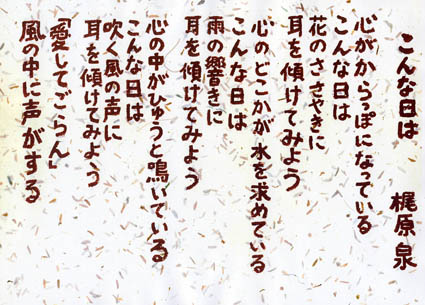 こんな日は
梶原 泉
心がからっぽになっている
こんな日は
花のささやきに
耳を傾けてみよう
心のどこかが水を求めている
こんな日は
雨の響きに
耳を傾けてみよう
心の中がひゅうと鳴いている
こんな日は
吹く風の声に
耳を傾けてみよう
「愛してごらん」
風の中に声がする